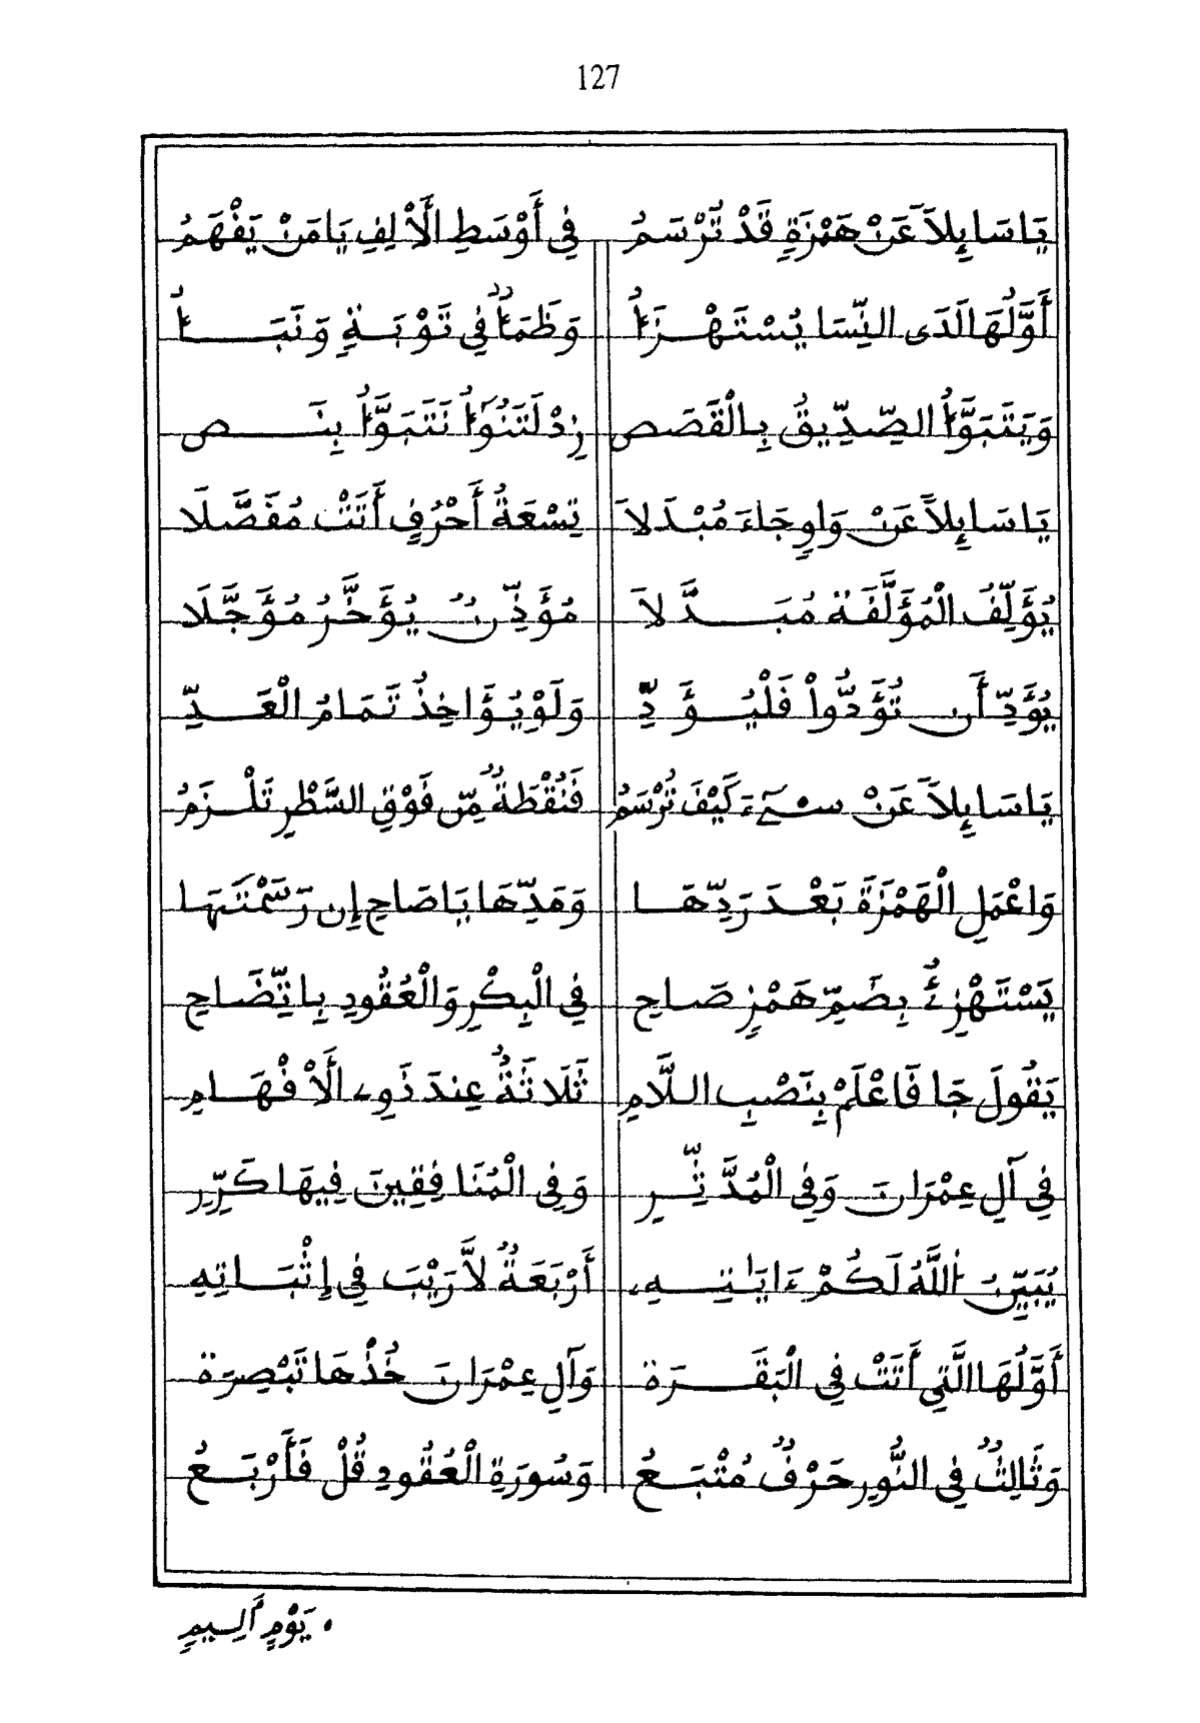 127
يَاسَايِٕلاً عَنْ هَمْزَةٍ قَدْ تُرْسَمُ فِي أَوْسَطِ الَأْلِفِ يَا مَنْ يَفْهَمُ
أَوَّلُهَا لَدَى النِّسَا يُسْتَهْزَأُ وَظَمَأٌ فِي تَوْبَةٍ وَنَبَأُ
وَيَتَبَوَّأُ الصِّدِّيقُ بِالْقَصَصِ زِدْ لَتَنُوأُ نَتَبَوَّأُ بِنَصِ
يَاسَايِٕلاً عَنْ وَاوٍ جَاءَ مُبْدَلاَ تِسْعَةُ أَحْرُفٍ أَتَتْ مُفَصَّلَا
يُؤَلِّفُ الْمُؤَلَّفَةُ مُبَدَّلاَ مُؤَذِّنٌ يُؤَخَّرُ مُؤَجَّلَا
يُؤَدِّ أَن تُؤَدُّواْ فَلْيُؤَدِّ وَلَوْ يُؤَاخِذُ تَمَامُ الْعَدِّ
يَاسَايِٕلاً عَنْ سىٓءَ كَيْفَ تُرْسَمُ فَنُقْطَةٌ مِّن فَوْقِ السَّطْرِ تَلْزَمُ
وَاعْمَلِ الْهَمْزَةَ بَعْدَ رَدِّهَا وَمَدِّهَا يَا صَاحِ إِن رَسَمْتَهَا
يَسْتَهْزِئُ بِضَمِّ هَمْزٍ صَاحِ فِي الْبِكْرِ وَالْعُقُودِ بِاتِّضَاحِ
يَقُولَ جَا فَاعْلَمْ بِنَصْبِ اللَّامِ ثَلَاثَةٌ عِندَ ذَوِے الَأْفْهَامِ
فِي آلِ عِمْرَانَ وَفِي الْمُدَّثِّرِ وَفِي الْمُنَافِقِينَ فِيهَا كَرِّرِ
يُبَيِّنُ اللَّهُ لَكُمْ ءَايَٰتِهِۦ أَرْبَعَةٌ لاَّ رَيْبَ فِي إِثْبَاتِهِ
أَوَّلُهَا الَّتِي أَتَتْ فِي الْبَقَرَة وَآلِ عِمْرَانَ خُذْهَا تَبْصِرَة
وَثَالِثٌ فِي النُّورِ حَرْفٌ مُتْبَعُ وَسُورَةِ الْعُقُودِ قُلْ فَأَرْبَعُ
• يَوْمٍ أَلِيمٍ